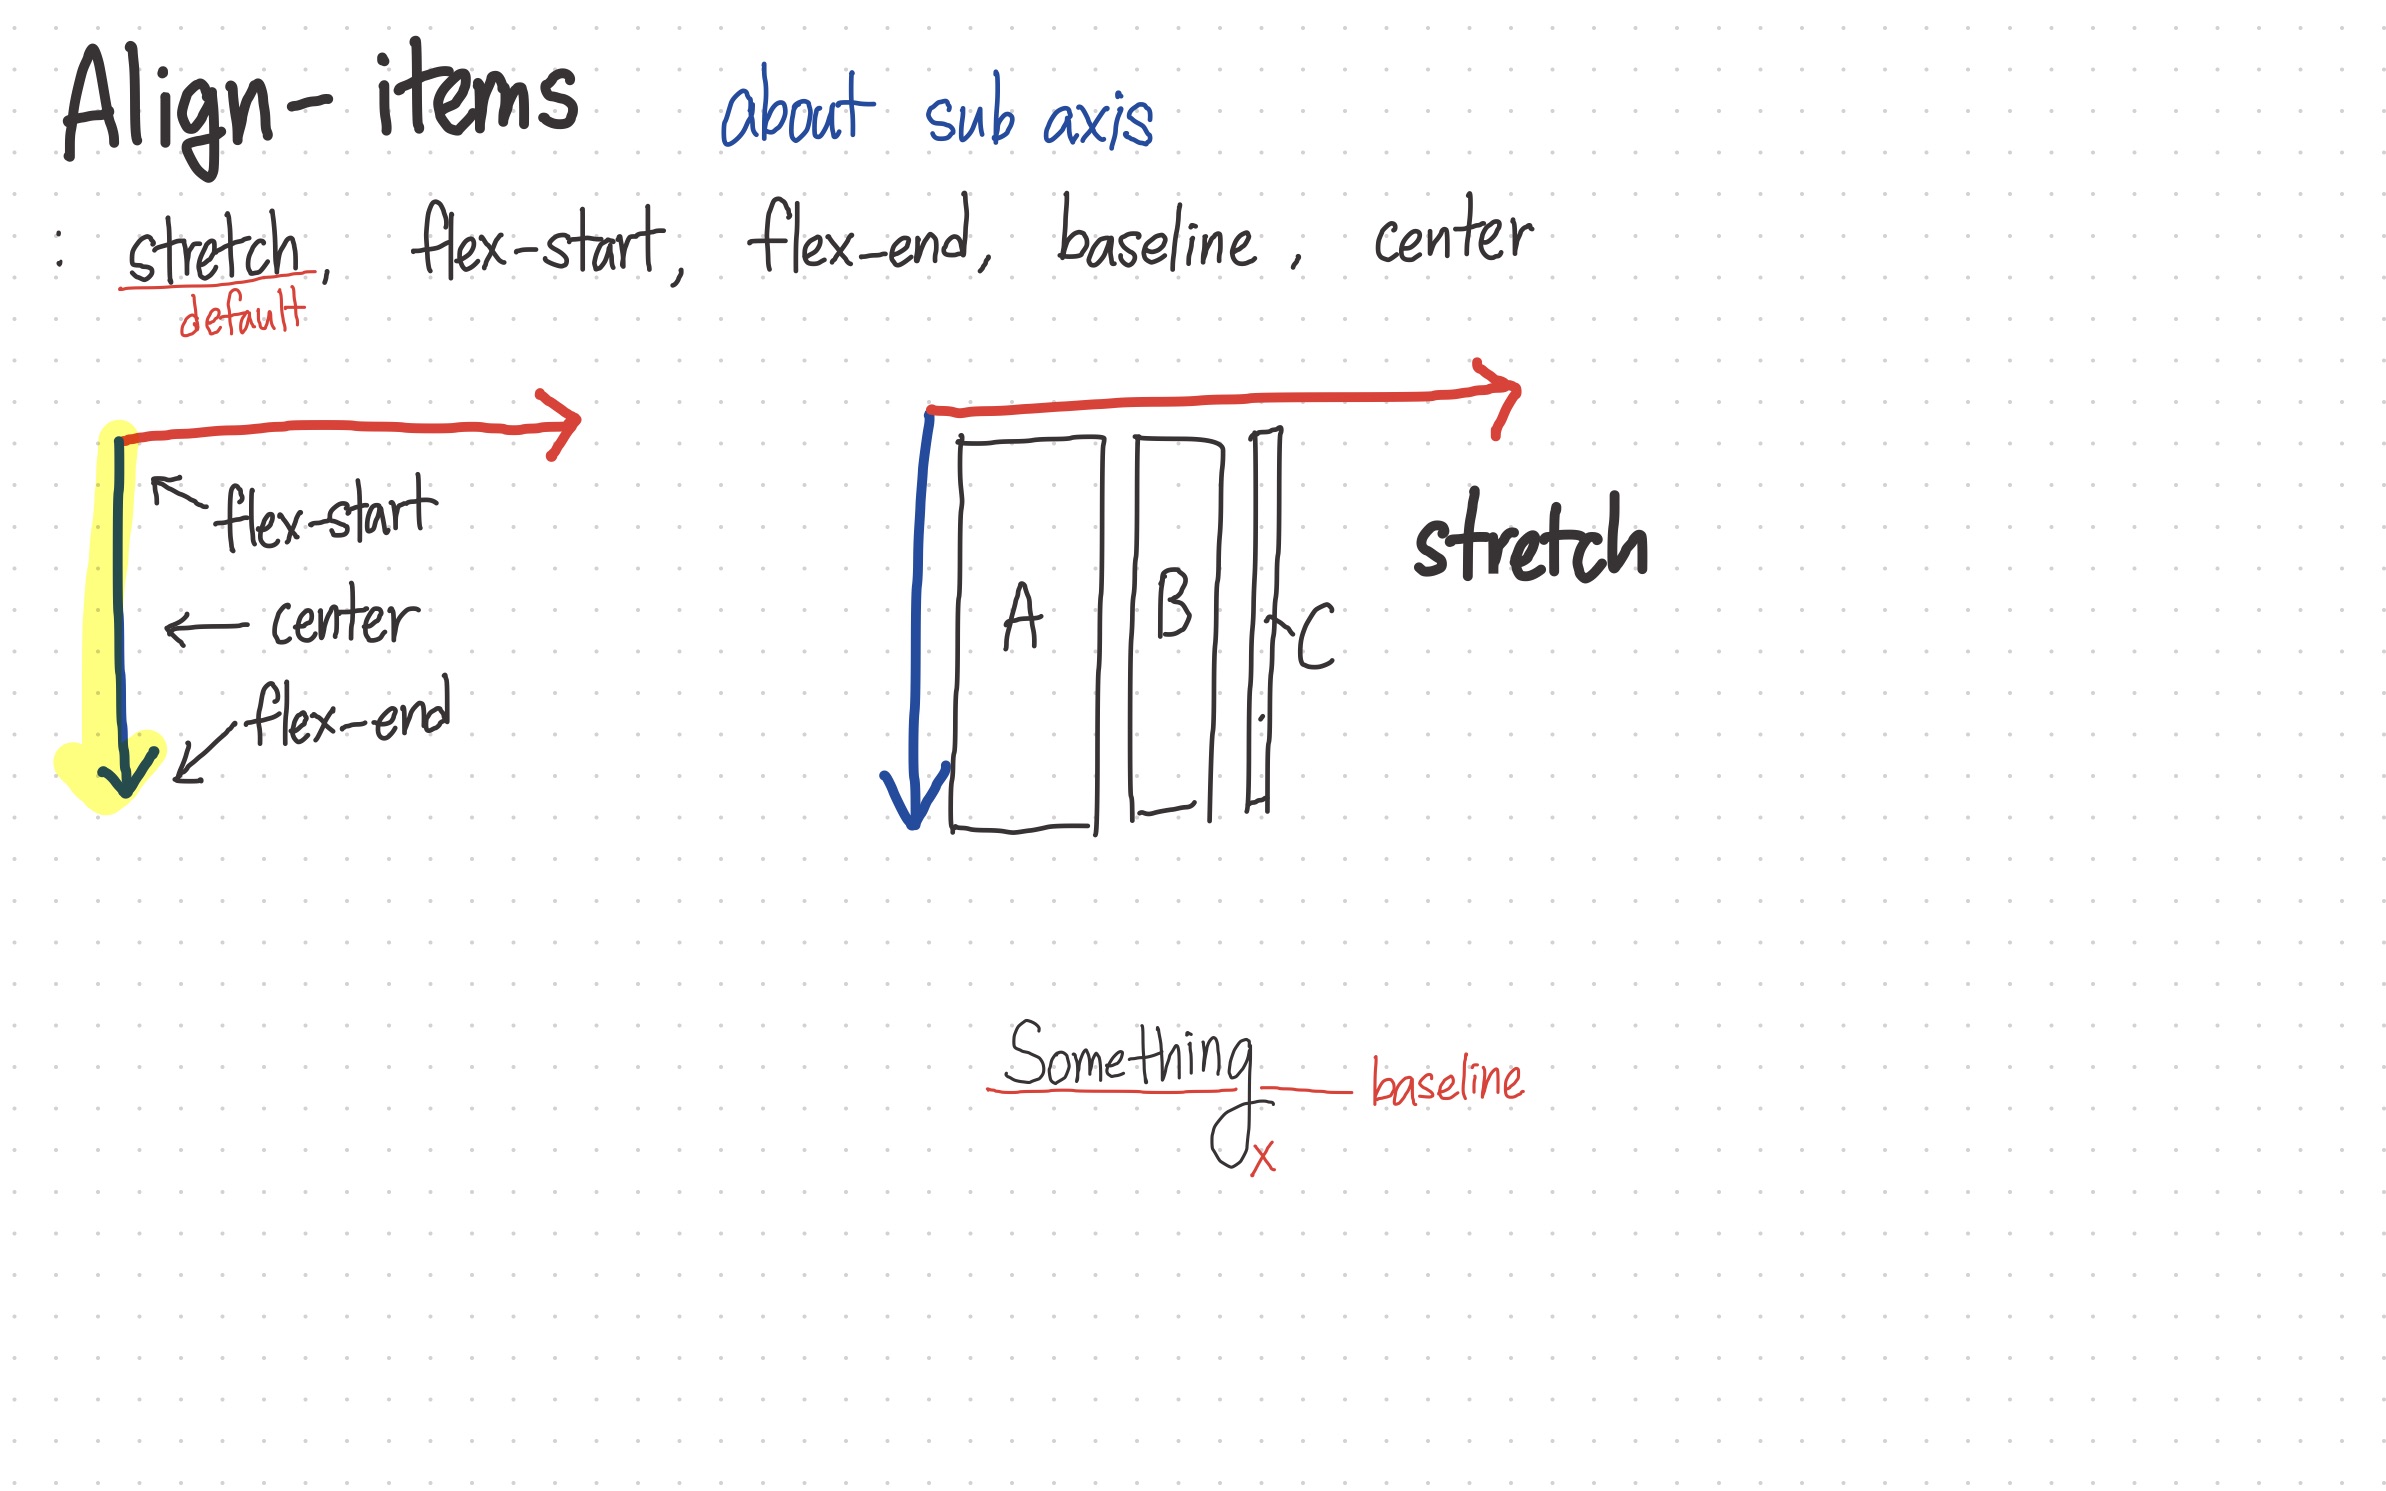 Align-items about sub axis
: stretch, flex-start, flex-end, baseline, center
default
flex-start
center
flex-end
stretch
A
B
C
Something
baseline
x